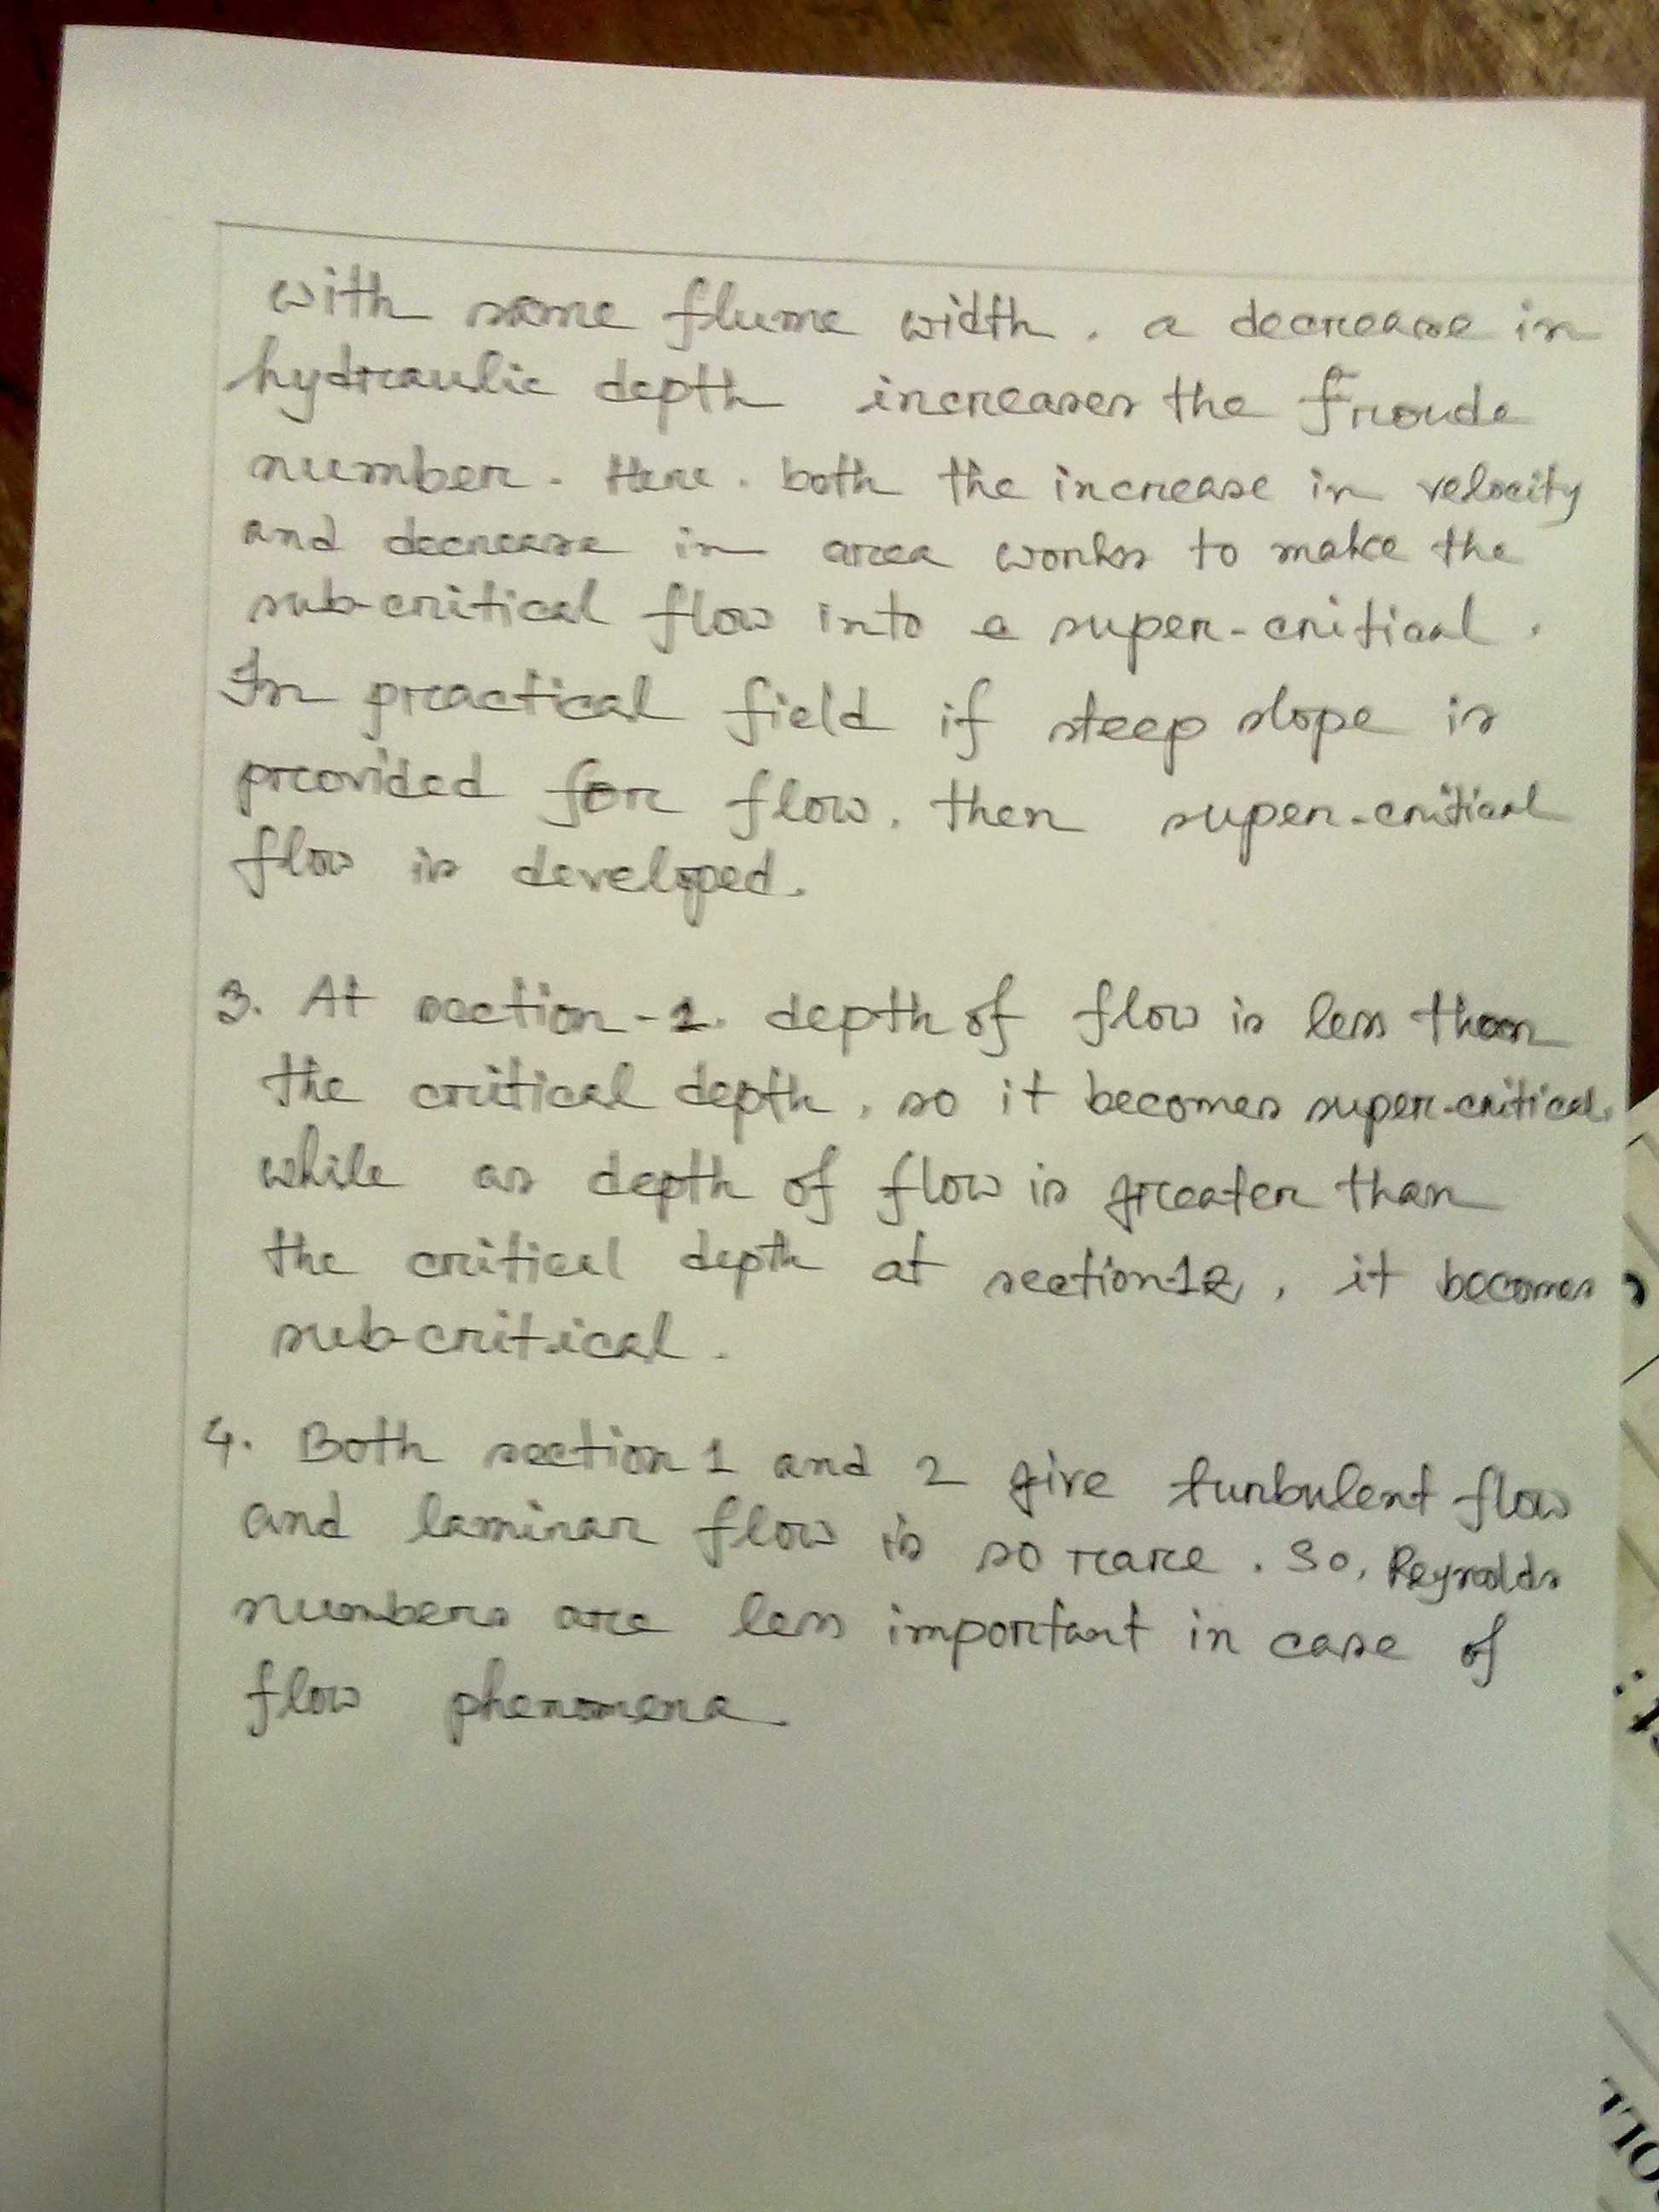 with same flume width, a decrease in
hydraulic depth increases the Froude
number. Here, both the increase in velocity
and decrease in area works to make the
sub-critical flow into a super-critical.
In practical field if steep slope is
provided for flow, then super-critical
flow is developed.
3. At section-2, depth of flow is less than
the critical depth, so it becomes super-critical,
while as depth of flow is greater than
the critical depth at section-12, it becomes
sub-critical.
4. Both section 1 and 2 give turbulent flow
and laminar flow is so rare. So, Reynolds
numbers are less important in case of
flow phenomena.